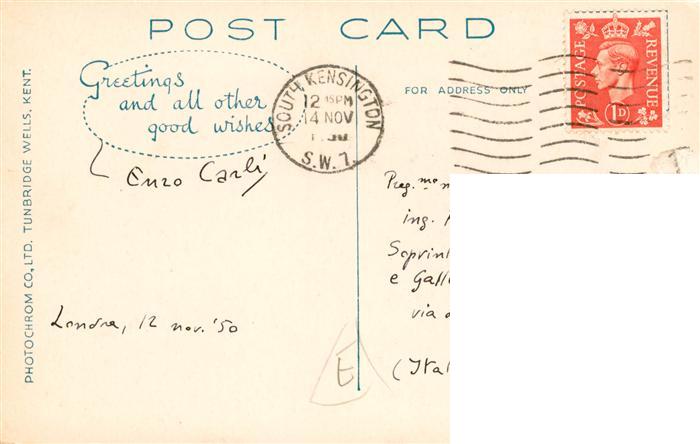 POST CARD
Greetings
and all other
good wishes
FOR ADDRESS ONLY
SOUTH KENSINGTON
12 15PM
14 NOV
S.W.7.
POSTAGE
REVENUE
1D
Enzo Carli
Londra, 12 nov. '50
Preg.mo
ing.
Soprin
e Gall
via
(Ital
E
PHOTOCHROM CO., LTD. TUNBRIDGE WELLS, KENT.